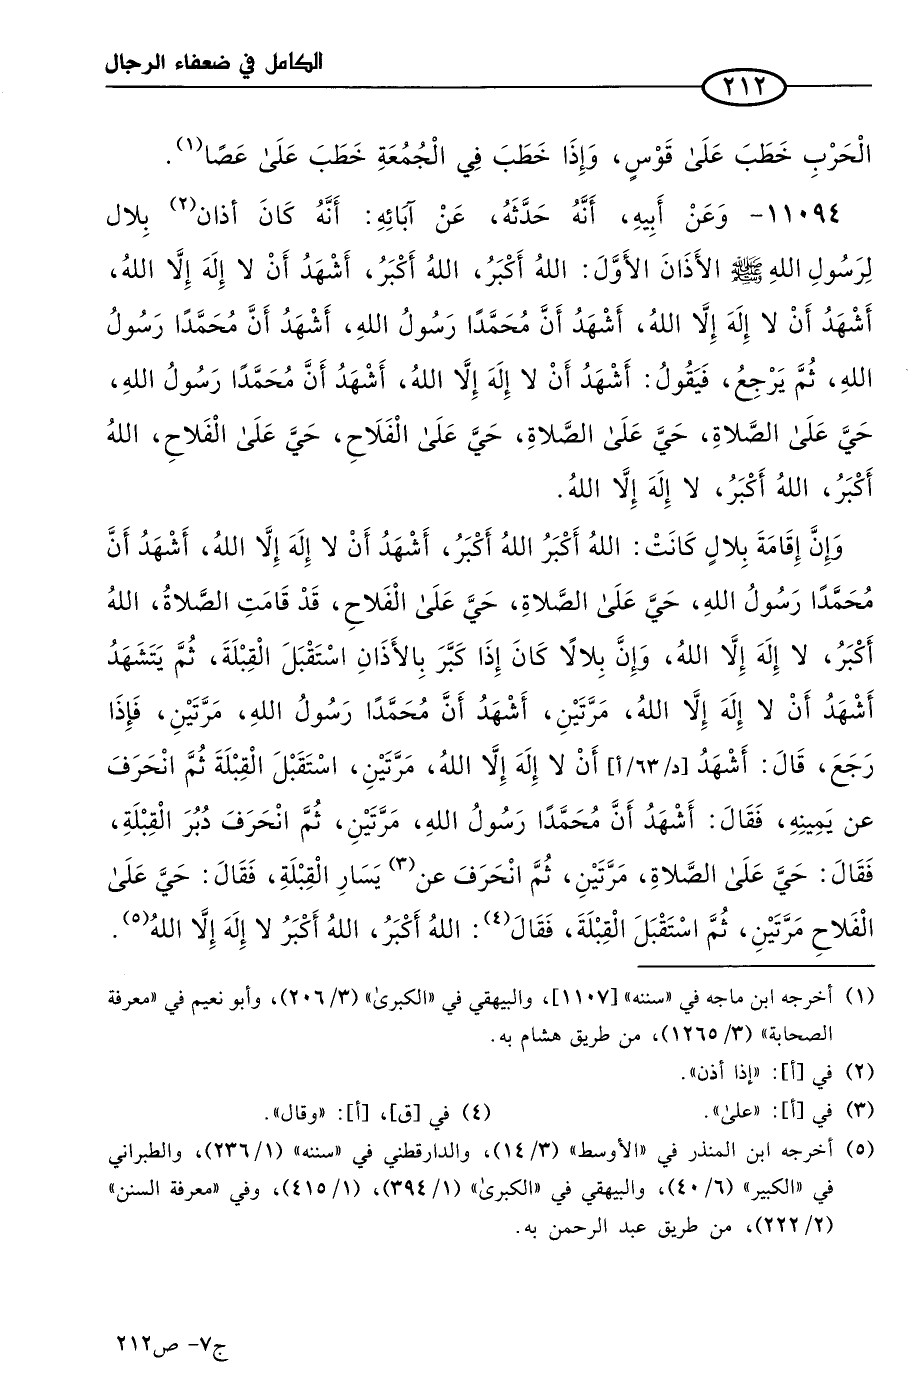 الكامل في ضعفاء الرجال
٢١٢
الْحَرْبِ خَطَبَ عَلَىٰ قَوْسٍ، وَإِذَا خَطَبَ فِي الْجُمُعَةِ خَطَبَ عَلَىٰ عَصًا(١).
١١٠٩٤- وَعَنْ أَبِيهِ، أَنَّهُ حَدَّثَهُ، عَنْ آبَائِهِ: أَنَّهُ كَانَ أذان(٢) بِلال
لِرَسُولِ اللهِ ﷺ الأَذَانَ الأَوَّلَ: اللهُ أَكْبَرُ، اللهُ أَكْبَرُ، أَشْهَدُ أَنْ لا إِلَهَ إِلَّا اللهُ،
أَشْهَدُ أَنْ لا إِلَهَ إِلَّا اللهُ، أَشْهَدُ أَنَّ مُحَمَّدًا رَسُولُ اللهِ، أَشْهَدُ أَنَّ مُحَمَّدًا رَسُولُ
اللهِ، ثُمَّ يَرْجِعُ، فَيَقُولُ: أَشْهَدُ أَنْ لا إِلَهَ إِلَّا اللهُ، أَشْهَدُ أَنَّ مُحَمَّدًا رَسُولُ اللهِ،
حَيَّ عَلَىٰ الصَّلاةِ، حَيَّ عَلَىٰ الصَّلاةِ، حَيَّ عَلَىٰ الْفَلَاحِ، حَيَّ عَلَىٰ الْفَلَاحِ، اللهُ
أَكْبَرُ، اللهُ أَكْبَرُ، لا إِلَهَ إِلَّا اللهُ.
وَإِنَّ إِقَامَةَ بِلالٍ كَانَتْ: اللهُ أَكْبَرُ اللهُ أَكْبَرُ، أَشْهَدُ أَنْ لا إِلَهَ إِلَّا اللهُ، أَشْهَدُ أَنَّ
مُحَمَّدًا رَسُولُ اللهِ، حَيَّ عَلَىٰ الصَّلاةِ، حَيَّ عَلَىٰ الْفَلَاحِ، قَدْ قَامَتِ الصَّلاةُ، اللهُ
أَكْبَرُ، لا إِلَهَ إِلَّا اللهُ، وَإِنَّ بِلالًا كَانَ إِذَا كَبَّرَ بِالأَذَانِ اسْتَقْبَلَ الْقِبْلَةَ، ثُمَّ يَتَشَهَدُ
أَشْهَدُ أَنْ لا إِلَهَ إِلَّا اللهُ، مَرَّتَيْنِ، أَشْهَدُ أَنَّ مُحَمَّدًا رَسُولُ اللهِ، مَرَّتَيْنِ، فَإِذَا
رَجَعَ، قَالَ: أَشْهَدُ [د/٦٣/أ] أَنْ لا إِلَهَ إِلَّا اللهُ، مَرَّتَيْنِ، اسْتَقْبَلَ الْقِبْلَةَ ثُمَّ انْحَرَفَ
عن يَمِينِهِ، فَقَالَ: أَشْهَدُ أَنَّ مُحَمَّدًا رَسُولُ اللهِ، مَرَّتَيْنِ، ثُمَّ انْحَرَفَ دُبُرَ الْقِبْلَةِ،
فَقَالَ: حَيَّ عَلَىٰ الصَّلاةِ، مَرَّتَيْنِ، ثُمَّ انْحَرَفَ عن(٣) يَسَارِ الْقِبْلَةِ، فَقَالَ: حَيَّ عَلَىٰ
الْفَلَاحِ مَرَّتَيْنِ، ثُمَّ اسْتَقْبَلَ الْقِبْلَةَ، فَقَالَ(٤): اللهُ أَكْبَرُ، اللهُ أَكْبَرُ لا إِلَهَ إِلَّا اللهُ(٥).
(١) أخرجه ابن ماجه في «سننه» [١١٠٧]، والبيهقي في «الكبرىٰ» (٢٠٦/٣)، وأبو نعيم في «معرفة
الصحابة» (١٢٦٥/٣)، من طريق هشام به.
(٢) في [أ]: «إذا أذن».
(٣) في [أ]: «علىٰ». (٤) في [ق]، [أ]: «وقال».
(٥) أخرجه ابن المنذر في «الأوسط» (١٤/٣)، والدارقطني في «سننه» (٢٣٦/١)، والطبراني
في «الكبير» (٤٠/٦)، والبيهقي في «الكبرىٰ» (٣٩٤/١)، (٤١٥/١)، وفي «معرفة السنن»
(٢٢٢/٢)، من طريق عبد الرحمن به.
ج٧- ص٢١٢